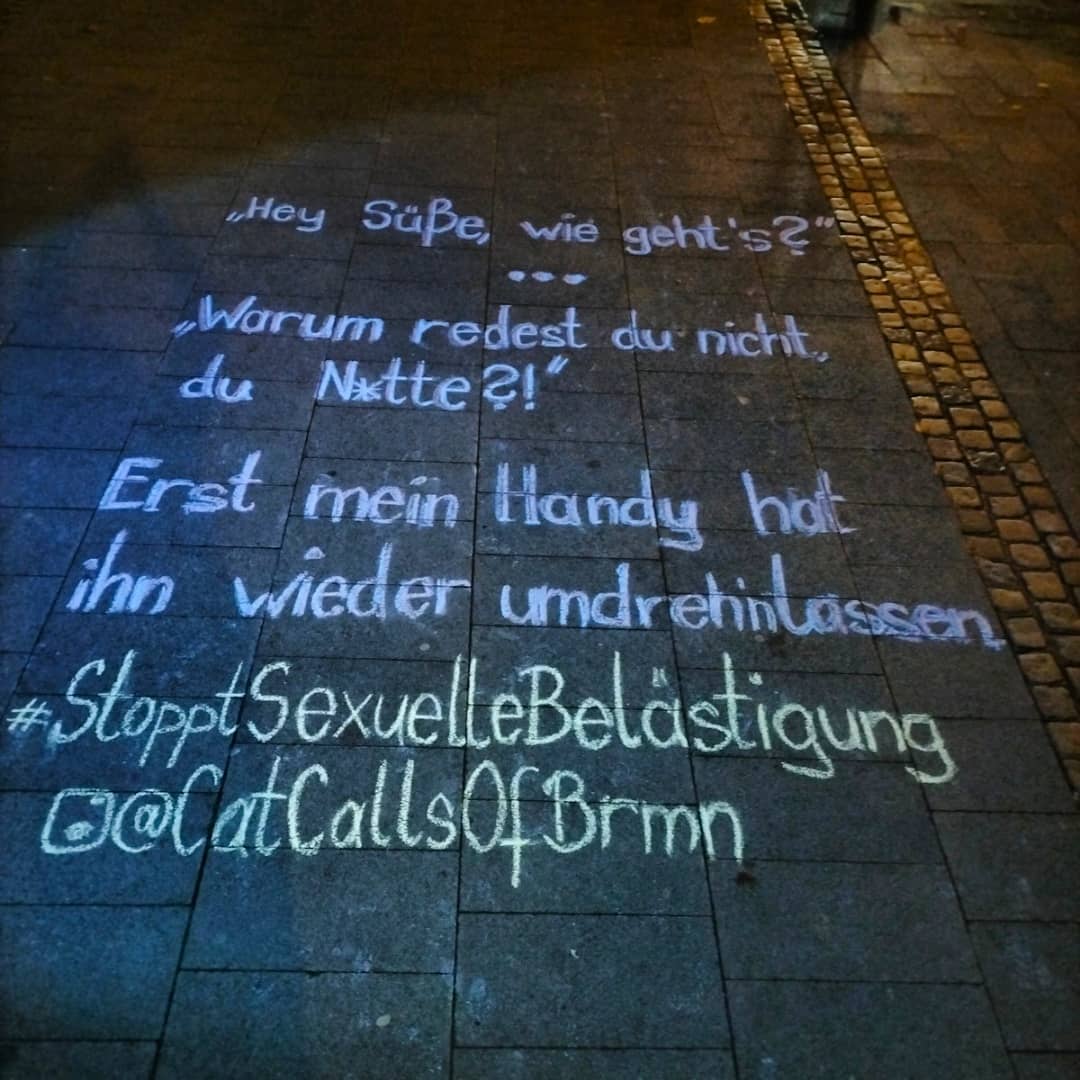 „Hey Süße, wie geht's?"
...
„Warum redest du nicht,
du N*tte?!"
Erst mein Handy hat
ihn wieder umdrehn lassen.
#StopptSexuelleBelästigung
@CatCallsOfBrmn